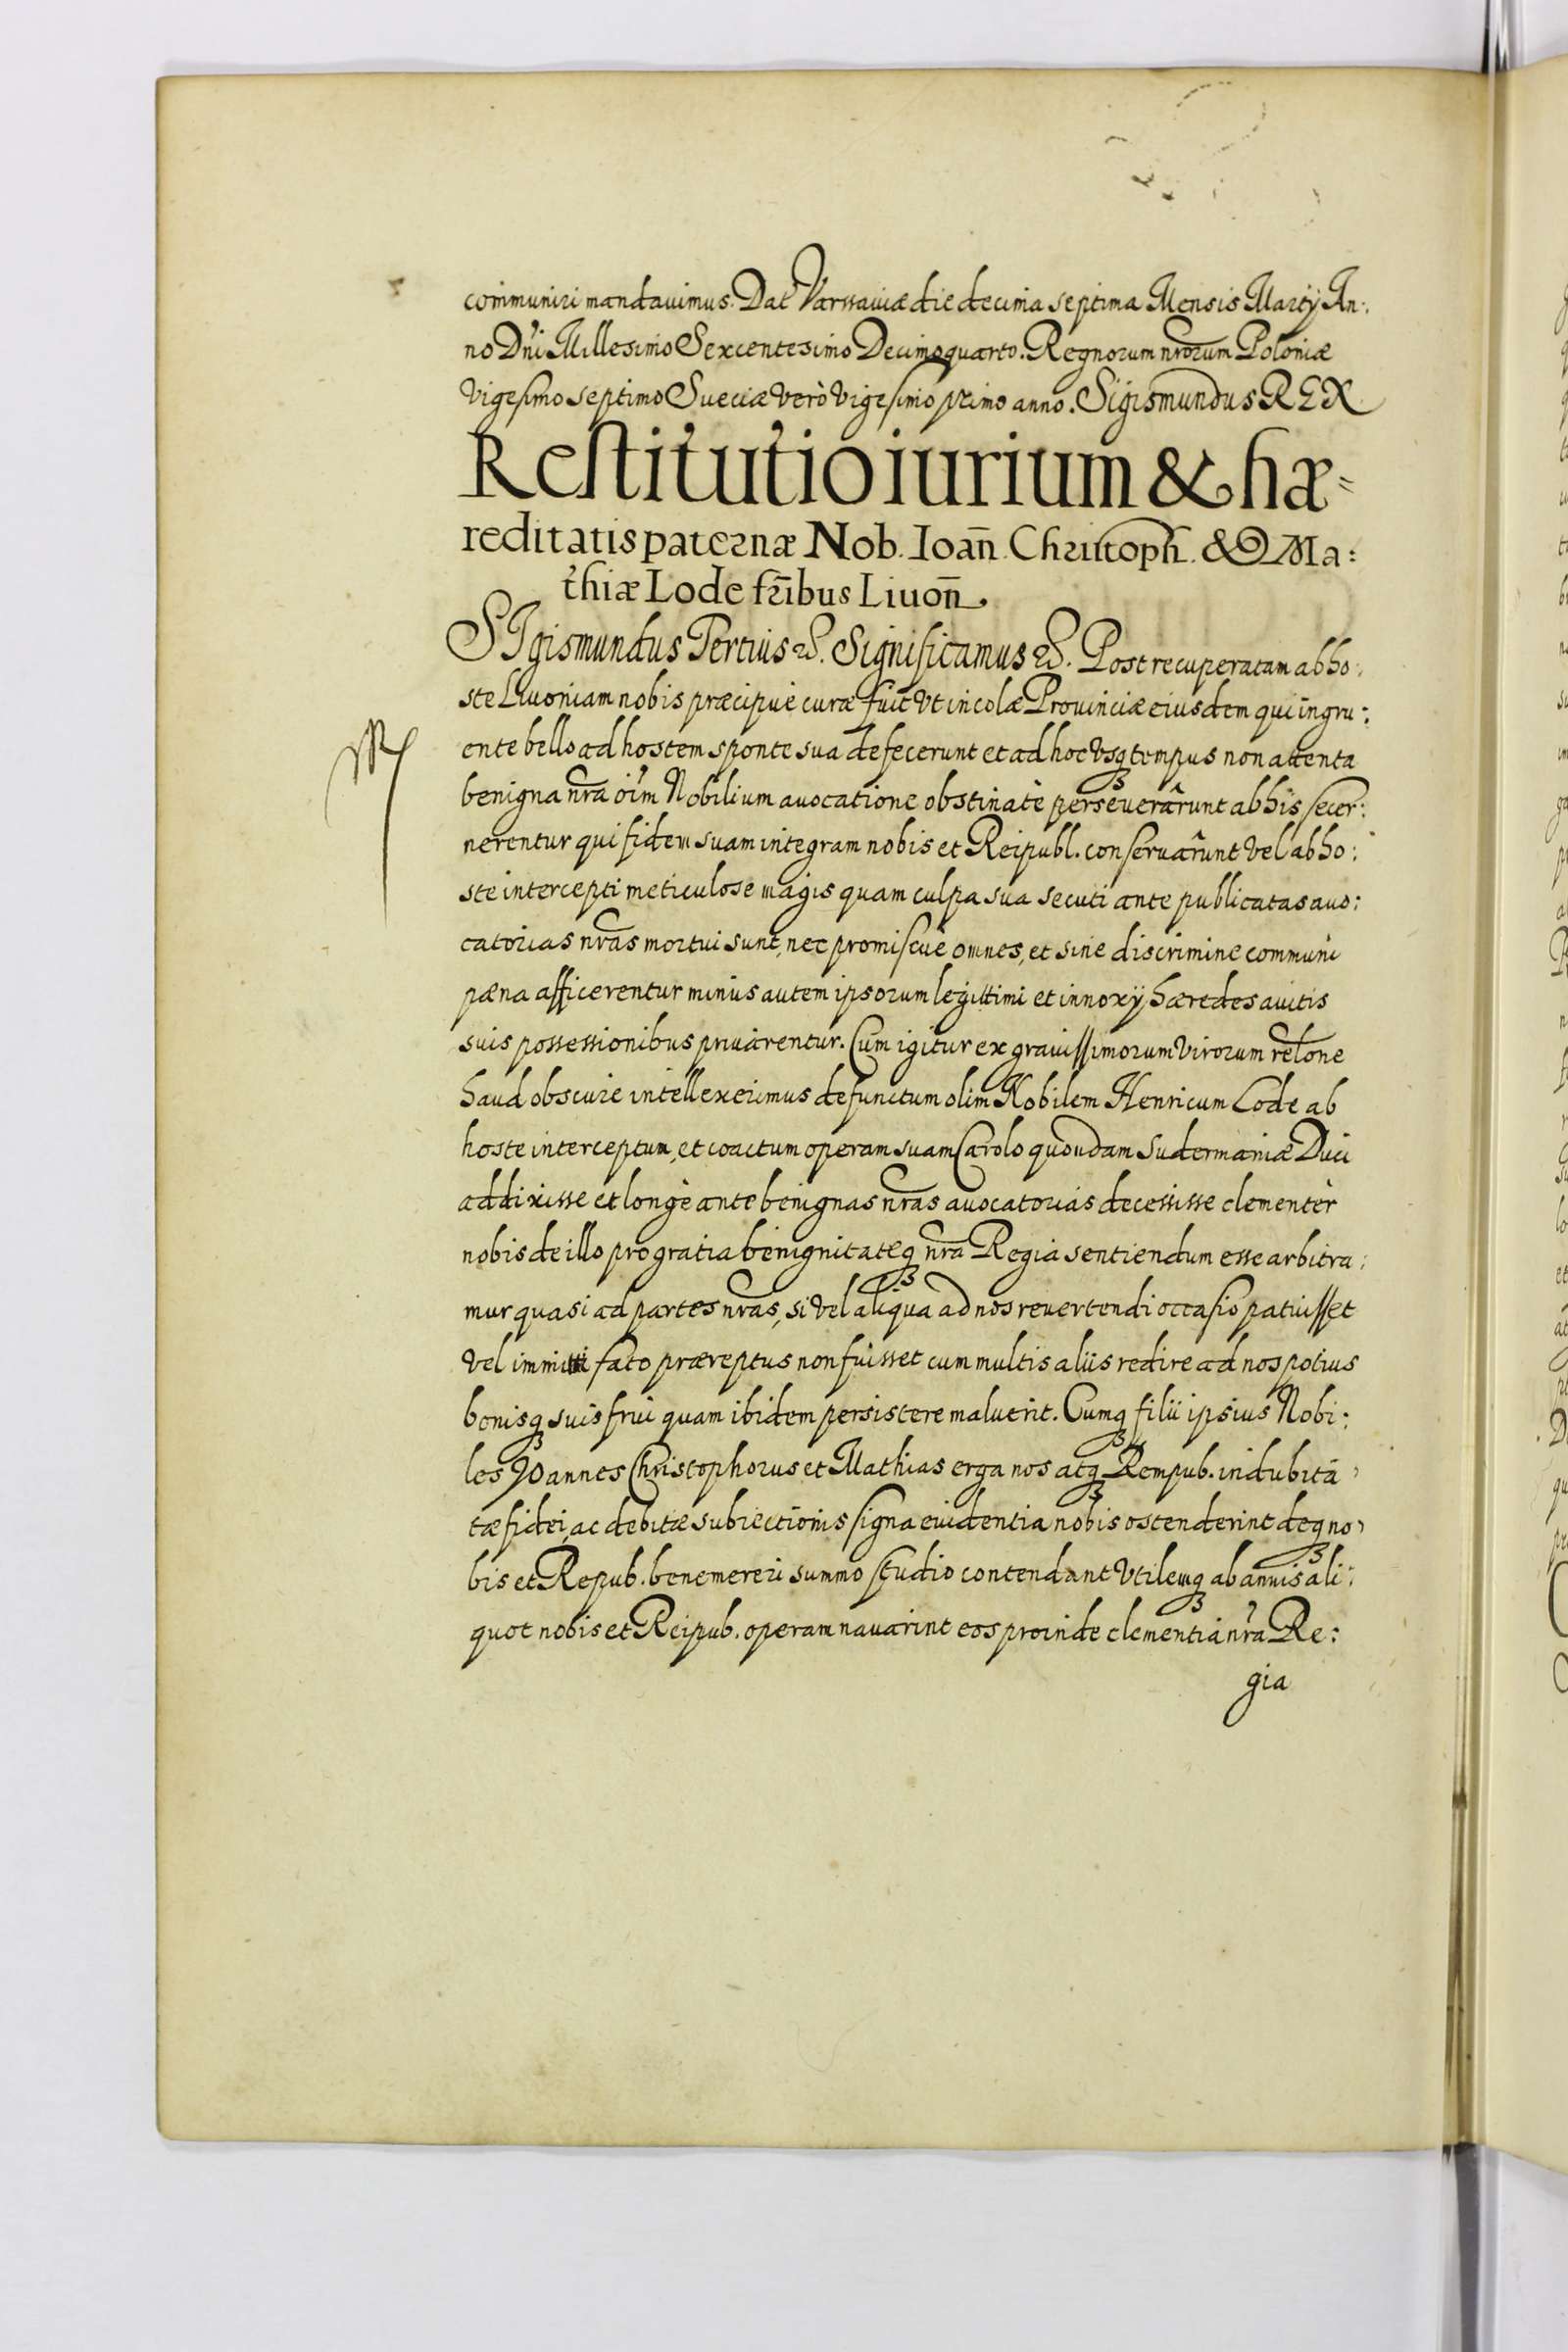 communiri mandauimus. Dat Varssauiæ die decima septima Mensis Martÿ An:
no Dni Millesimo Sexcentesimo Decimoquarto. Regnorum nrorum Poloniæ
vigesimo septimo Sueciæ verò vigesimo primo anno. Sigismundus REX
Restitutio iurium & hæ=
reditatis paternæ Nob. Ioan̄ Christoph. & Ma:
thiæ Lode fr̄ibus Liuon̄.
SIgismundus Tertius &. Significamus &. Post recuperatam ab ho:
ste Liuoniam nobis præcipuè curæ fuit vt incolæ Prouinciæ eiusdem qui ingru:
ente bello ad hostem sponte sua defecerunt et ad hoc vsq tempus non attenta
benigna nra oim Nobilium auocatione obstinatè perseuerârunt ab his secer:
nerentur qui fidem suam integram nobis et Reipubl. conseruârunt vel ab ho:
ste intercepti meticulose magis quam culpa sua secuti ante publicatas auo:
catorias nras mortui sunt, nec promiscuè omnes, et sine discrimine communi
pæna afficerentur minùs autem ipsorum legittimi et innoxÿ hæredes auitis
suis possessionibus priuârentur. Cum igitur ex grauissimorum virorum relone
haud obscure intellexerimus defunctum olim Nobilem Henricum Lode ab
hoste interceptum, et coactum operam suam Carolo quondam Sudermaniæ Duci
addixisse et longè ante benignas nras auocatorias decessisse clementèr
nobis de illo pro gratia benignitateq nra Regia sentiendum esse arbitra:
mur quasi ad partes nras, si vel aliqua ad nos reuertendi occasio patuisset
vel immitti fato præreptus non fuisset cum multis aliis redire ad nos potius
bonisq suis frui quam ibidem persistere maluerit. Cumq filii ipsius Nobi:
les Joannes Christophorus et Mathias erga nos atq Rempub. indubitâ
tæ fidei, ac debitæ subiectionis signa euidentia nobis ostenderint deq no
bis et Repub. benemereri summo studio contendant vtilemq ab annis ali:
quot nobis et Reipub. operam nauarint eos proinde clementia nra Re:
gia